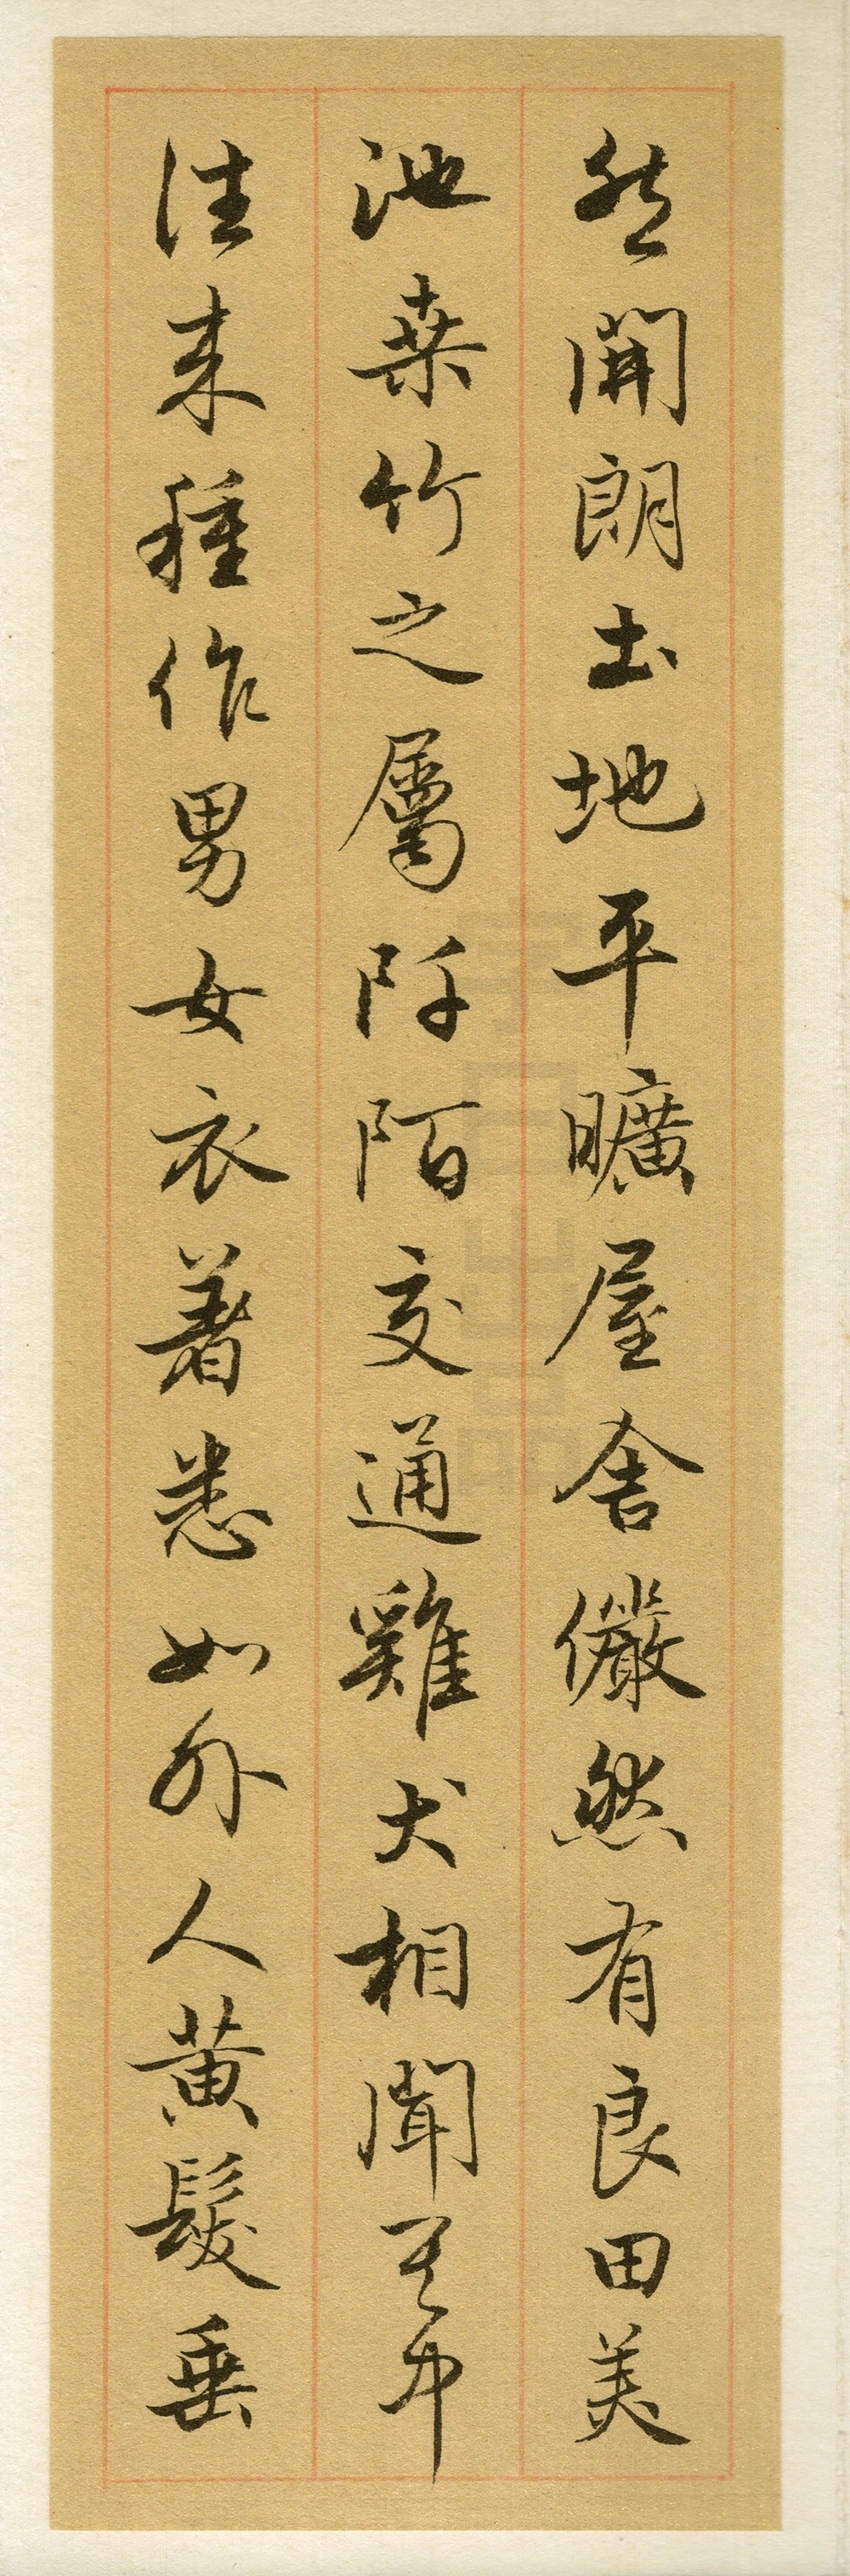 然開朗土地平曠屋舍儼然有良田美
池桑竹之屬阡陌交通雞犬相聞其中
往来種作男女衣著悉如外人黄髮垂